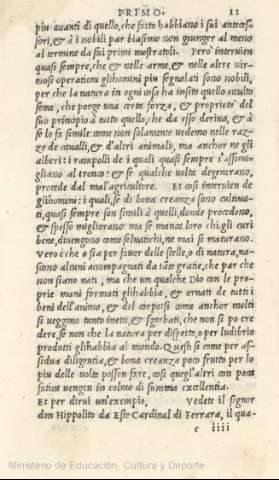 PRIMO. 12
piu auanti di quello, che fatto habbiano i sui antecess-
sori, & à i nobili par biasimo non giunger al meno
al termine da sui primi mostratoli. Però interuien
quasi sempre, che & nelle arme, & nelle altre uir-
tuose operationi glihomini piu segnalati sono nobili,
per che la natura in ogni cosa ha insito quello occulto
seme, che porge una certa forza, & proprietà del
suo principio à tutto quello, che da esso deriua, & à
se lo fa simile come non solamente uedemo nelle raz-
ze de caualli, & d'altri animali, ma anchor ne gli
alberi: i rampolli de i quali quasi sempre s'assimi-
gliano al tronco: & se qualche uolta degenerano,
procede dal mal'agricultore. Et cosi interuien de
glihomini: i quali, se di bona creanza sono cultiua-
ti, quasi sempre son simili à quelli, donde procedono,
& spesso migliorano: ma se manca loro chi gli curi
bene, diuengono come seluatichi, ne mai si maturano.
Vero è che o sia per fauor delle stelle, o di natura, na-
scono alcuni accompagnati da tãte gratie, che par che
non sian nati, ma che un qualche Dio con le pro-
prie mani formati glihabbia, & ornati de tutti i
beni dell'animo, & del corpo: si come anchor molti
si ueggono tanto inetti, & sgarbati, che non si po cre
dere, se non che la natura per dispetto, o per ludibrio
produtti glihabbia al mondo. Questi si come per as-
sidua diligentia, & bona creanza poco frutto per lo
piu delle uolte posson fare, cosi quegl'altri con poca
fatica uengon in colmo di summa excellentia.
Et per dirui un'exempio, Vedete il signor
don Hippolito da Este Cardinal di Ferrara, il qua-
c iiii
Ministerio de Educación, Cultura y Deporte